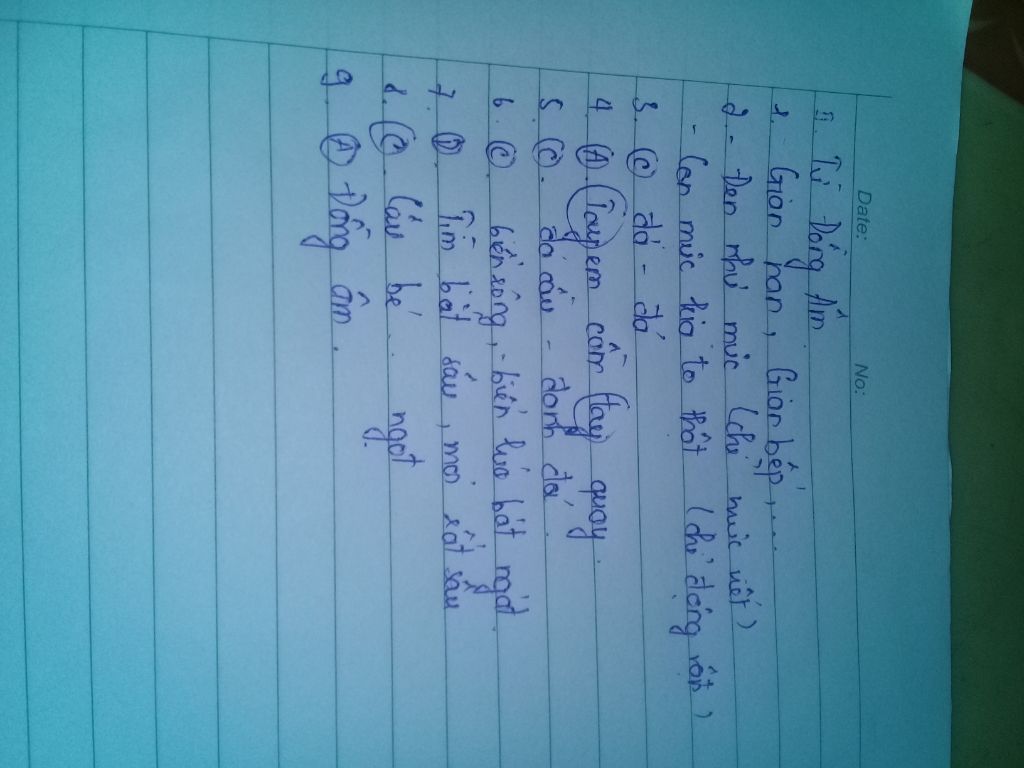 Date: No:
II. Từ Đồng Âm
1. Gian nan, Gian bếp,....
2 - Đen như mực (chỉ mực viết)
- Con mực kia to thật (chỉ động vật)
3. C đá - đá
4. A. Tay em cầm tay quay.
5. C. đá cầu - đánh đá.
6. C. biển rộng, - biển lúa bát ngát.
7. D. Tìm bắt sâu, moi rất sâu
8. C. Câu bé... ngọt
9. A Đồng âm.